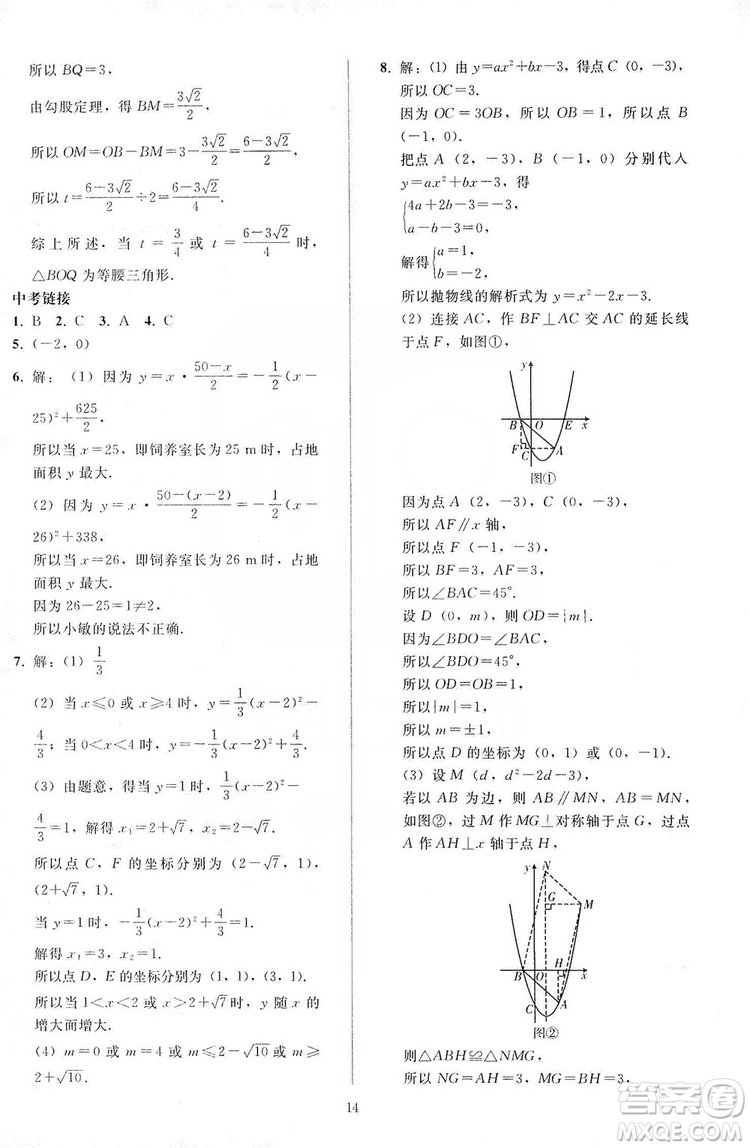 所以 BQ=3,
由勾股定理，得 BM=3√2/2,
所以 OM=OB−BM=3−3√2/2=(6−3√2)/2,
所以 t=(6−3√2)/2÷2=(6−3√2)/4.
综上所述，当 t=3/4 或 t=(6−3√2)/4 时，
△BOQ 为等腰三角形.
中考链接
1. B 2. C 3. A 4. C
5. (−2, 0)
6. 解：(1) 因为 y=x·(50−x)/2=−1/2(x−
25)²+625/2.
所以当 x=25，即饲养室长为 25 m 时，占地
面积 y 最大.
(2) 因为 y=x·(50−(x−2))/2=−1/2(x−
26)²+338,
所以当 x=26，即饲养室长为 26 m 时，占地
面积 y 最大.
因为 26−25=1≠2,
所以小敏的说法不正确.
7. 解：(1) 1/3
(2) 当 x≤0 或 x≥4 时，y=1/3(x−2)²−
4/3；当 0<x<4 时，y=−1/3(x−2)²+4/3.
(3) 由题意，得当 1/3(x−2)²−
4/3=1，解得 x₁=2+√7, x₂=2−√7,
所以点 C，F 的坐标分别为 (2−√7, 1),
(2+√7, 1).
当 y=1，−1/3(x−2)²+4/3=1,
解得 x₁=3, x₂=1.
所以点 D，E 的坐标分别为 (1, 1), (3, 1).
所以当 1<x<2 或 x>2+√7 时，y 随 x 的
增大而增大.
(4) m=0 或 m=4 或 m≤2−√10 或 m≥
2+√10.
8. 解：(1) 由 y=ax²+bx−3，得点 C (0, −3),
所以 OC=3.
因为 OC=3OB，所以 OB=1，所以点 B
(−1, 0).
把点 A (2, −3), B (−1, 0) 分别代入
y=ax²+bx−3，得
{4a+2b−3=−3,
a−b−3=0,
解得{a=1,
b=−2.
所以抛物线的解析式为 y=x²−2x−3.
(2) 连接 AC，作 BF⊥AC 交 AC 的延长线
于点 F，如图①,
y
B O E x
F C A
图①
因为点 A (2, −3), C (0, −3),
所以 AF∥x 轴,
所以点 F (−1, −3),
所以 BF=3, AF=3,
所以∠BAC=45°.
设 D (0, m)，则 OD=|m|.
因为∠BDO=∠BAC,
所以∠BDO=45°,
所以 OD=OB=1,
所以|m|=1,
所以 m=±1,
所以点 D 的坐标为 (0, 1) 或 (0, −1).
(3) 设 M (d, d²−2d−3),
若以 AB 为边，则 AB∥MN，AB=MN，
如图②，过 M 作 MG⊥对称轴于点 G，过点
A 作 AH⊥x 轴于点 H,
y N
G M
H
B O x
C A
图②
则△ABH≌△NMG,
所以 NG=AH=3, MG=BH=3,
14
答案圈
MXQE.COM